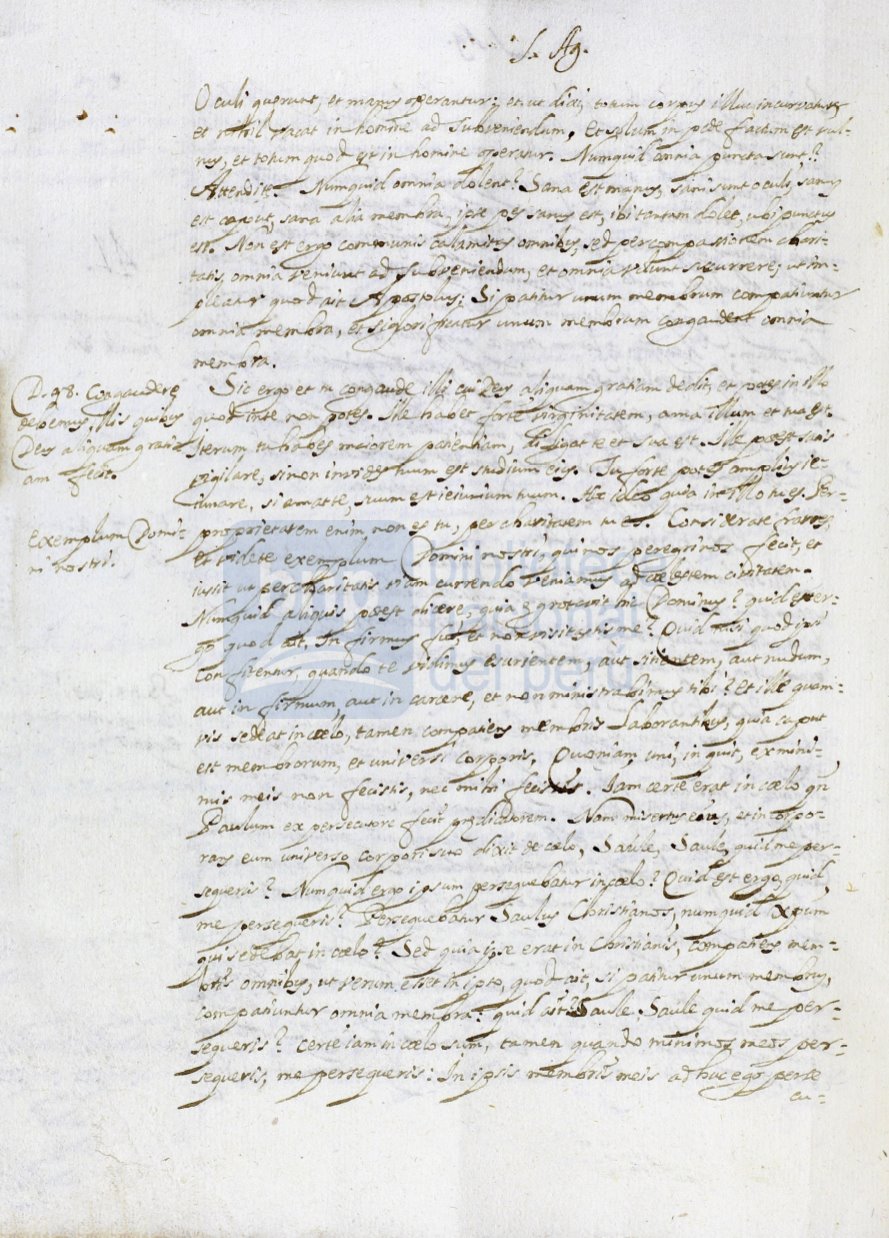 S. Ag.
Oculi querunt, et manus operantur; et ut dixi, totum corpus illuc incurvatur
et nihil vacat in homine ad subveniendum, et solum in pede factum est vul-
nus, et totum quod est in homine operatur. Numquid omnia puncta sunt?
Attendite. Numquid omnia dolent? Sana est manus, sani sunt oculi, sanum
est caput, sana alia membra, ipse pes sanus est, ibi tantum dolet, ubi punctus
est. Non est ergo communis calamitas omnibus, sed per compassionem chari-
tatis, omnia veniunt ad subveniendum, et omnia volunt sucurrere; ut im-
pleatur quod ait Apostolus; Si patitur unum membrum compatiuntur
omnia membra, et si glorificatur unum membrum congaudent omnia
membra.
D. 98. Congaudere
debemus, illis quibus
Deus aliquam grati-
am fecit.
Sic ergo et tu congaude illi cui Deus aliquam gratiam dedit, et potes in illo
quod in te non potes. Ille habet forte virginitatem, ama illum et tua est.
Iterum tu habes maiorem patientiam, diligat te et sua est. Ille potest satis
vigilare, si non invides tuum est studium eius. Tu forte potes amplius ie-
iunare, si amat te, suum est ieiunium tuum. Hæc ideo quia in illo tu es. Per-
Exemplum Domi-
ni nostri.
proprietatem enim non es tu, per charitatem tu es. Considerate fratres,
et videte exemplum Domini nostri, qui nos peregrinos fecit, et
iussit ut per charitatis viam currendo veniamus ad cælestem civitatem.
Numquid aliquis potest dicere, quia ęgrotavit mi Dominus? quid est er-
go quod ait. Infirmus fui, et non visitastis me? Quid nisi quod ipsi
confitentur, quando te vidimus esurientem, aut sitientem, aut nudum,
aut infirmum, aut in carcere, et non ministrabimus tibi? Et ille quam-
vis sedeat in cælo, tamen compatiens membris laborantibus, quia caput
est membrorum, et universi corporis, Quoniam, uni, inquit, ex mini-
mis meis non fecistis, nec mihi fecistis. Iam certe erat in cælo qñ
Paulum ex persecutore fecit prędicatorem. Nam misertus eius, et incorpo-
rans eum universo corpori suo dixit de cælo, Saule, Saule, quid me per-
sequeris? Numquid ergo ipsum persequebatur in cælo? Quid est ergo, quid
me persequeris? Persequebatur Saulus Christianos, numquid Xpum
qui sedebat in cælo? Sed quia ipse erat in Christianis, compatiens mem-
bris omnibus, ut verum esset in ipso, quod ait, si patitur unum membrum,
compatiuntur omnia membra: quid ait? Saule, Saule quid me per-
sequeris? Certe iam in cælo sum, tamen quando minimos meos per-
sequeris, me persequeris: In ipsis membris meis adhuc ego perse
cu-
biblioteca
nacional
del perú